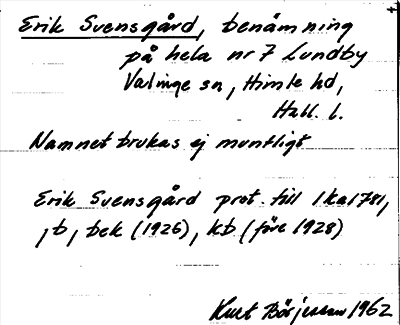 Erik Svensgård, benämning
på hela nr 7 Lundby
Valinge sn, Himle hd,
Hall. l.
Namnet brukas ej muntligt
Erik Svensgård prot. till 1ka 1781,
,b, bek (1926), kb (före 1928)
Kurt Börjesson 1962